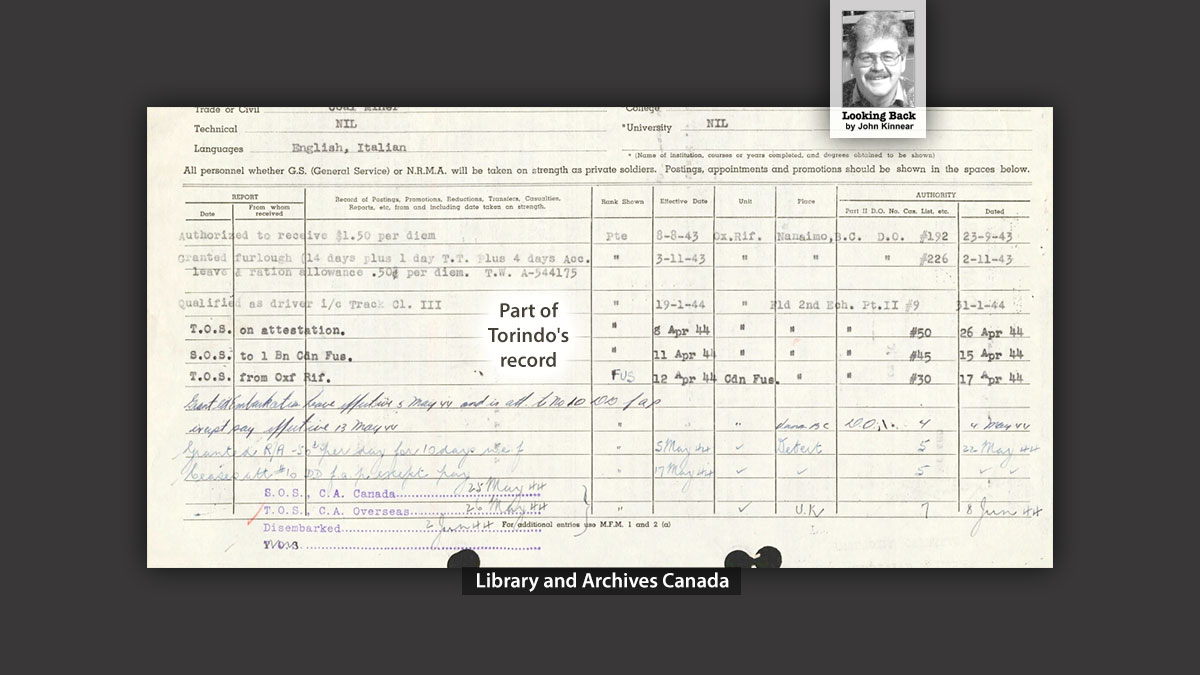 Looking Back
by John Kinnear
Trade or Civil Coal Miner College
Technical NIL *University NIL
Languages English, Italian
* (Name of institution, courses or years completed, and degrees obtained to be shown)
All personnel whether G.S. (General Service) or N.R.M.A. will be taken on strength as private soldiers. Postings, appointments and promotions should be shown in the spaces below.
REPORT
Date From whom received
Record of Postings, Promotions, Reductions, Transfers, Casualties,
Reports, etc. from and including date taken on strength.
Rank Shown Effective Date Unit Place
AUTHORITY
Part II D.O. No. Cas. List, etc. Dated
Authorized to receive $1.50 per diem Pte 8-8-43 Ox.Rif. Nanaimo,B.C. D.O. #192 23-9-43
Granted furlough (14 days plus 1 day T.T. Plus 4 days Acc. " 3-11-43 " " " #226 2-11-43
leave & ration allowance .50¢ per diem. T.W. A-544175
Qualified as driver i/c Track Cl. III " 19-1-44 " Fld 2nd Ech. Pt.II #9 31-1-44
T.O.S. on attestation. " 8 Apr 44 " " " #50 26 Apr 44
S.O.S. to 1 Bn Cdn Fus. " 11 Apr 44 " " " #45 15 Apr 44
T.O.S. from Oxf Rif. FUS 12 Apr 44 Cdn Fus. " " #30 17 Apr 44
Part of
Torindo's
record
Embarkation leave effective 5 May 44 and is att. to No 10 DD f a p
except pay effective 13 May 44 " " " D.O.1. 4 4 May 44
Granted R/A 50¢ per day for 10 days " 5 May 44 ✓ Debert 5 22 May 44
Cease att #10 DD f a p except pay " 17 May 44 ✓ ✓ 5 ✓ ✓
S.O.S., C.A. Canada 25 May 44
T.O.S., C.A. Overseas 26 May 44 " ✓ U.K 7 8 Jun 44
Disembarked 2 Jun 44 For additional entries use M.F.M. 1 and 2 (a)
Library and Archives Canada